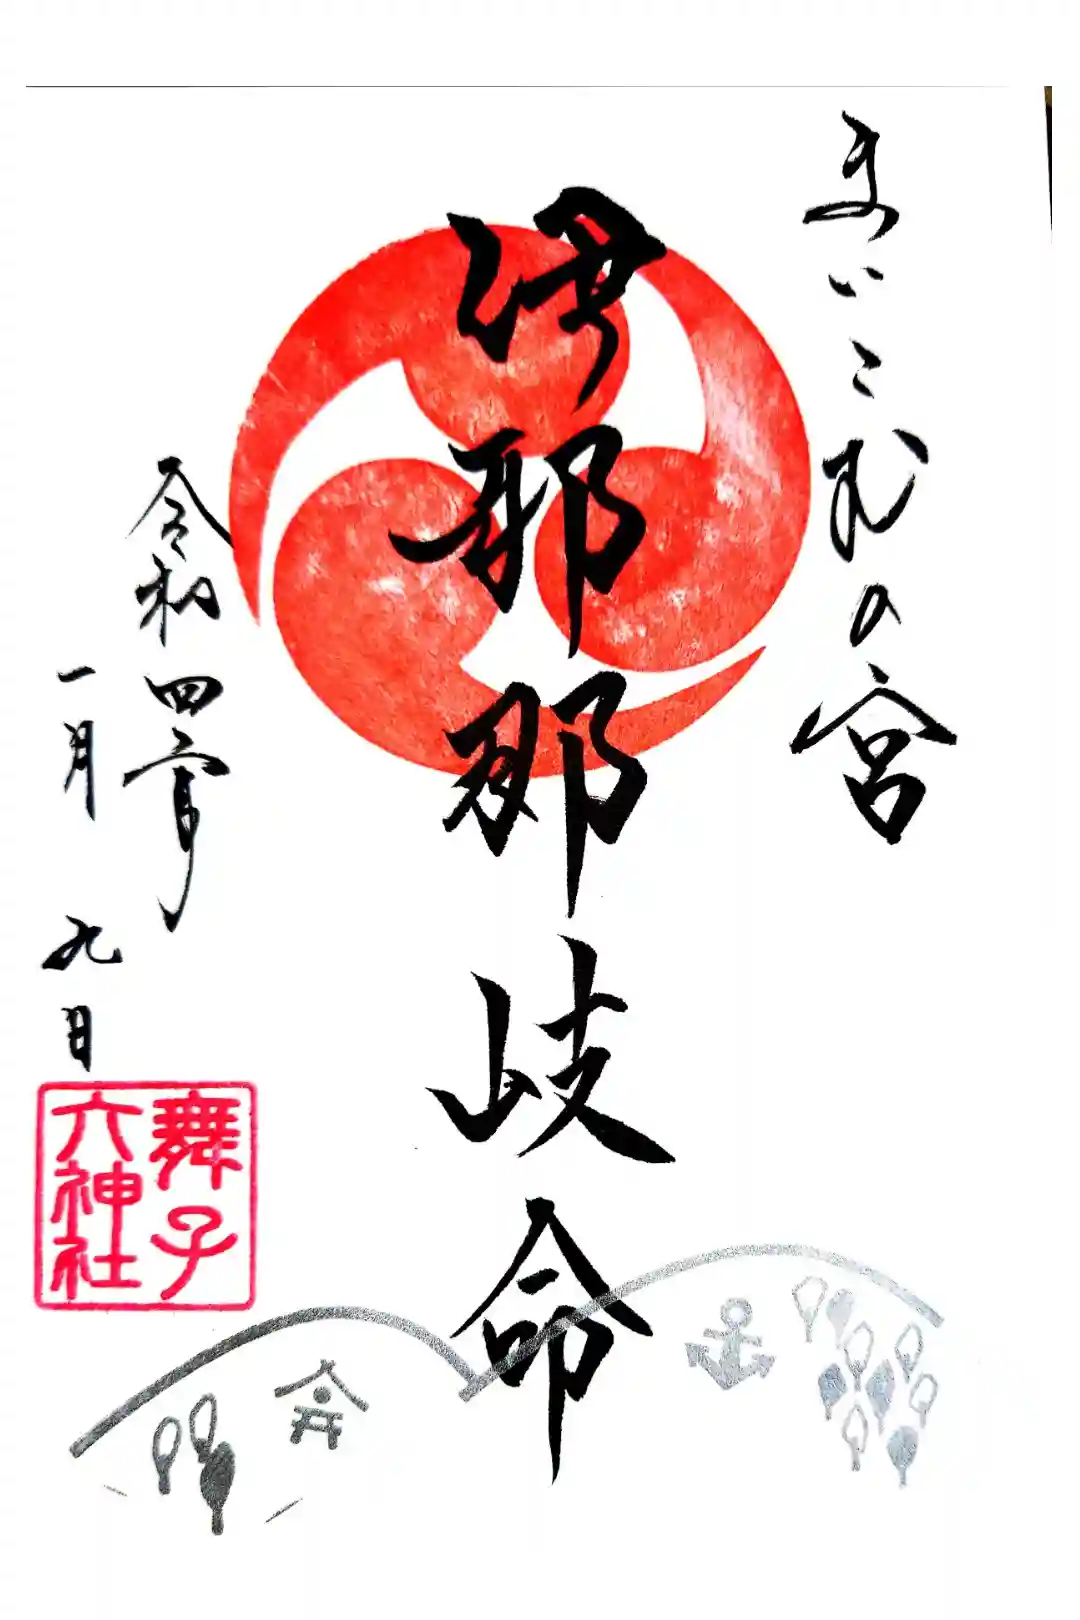 まいこむの宮
伊耶那岐命
令和四年
一月九日
舞子
六神社